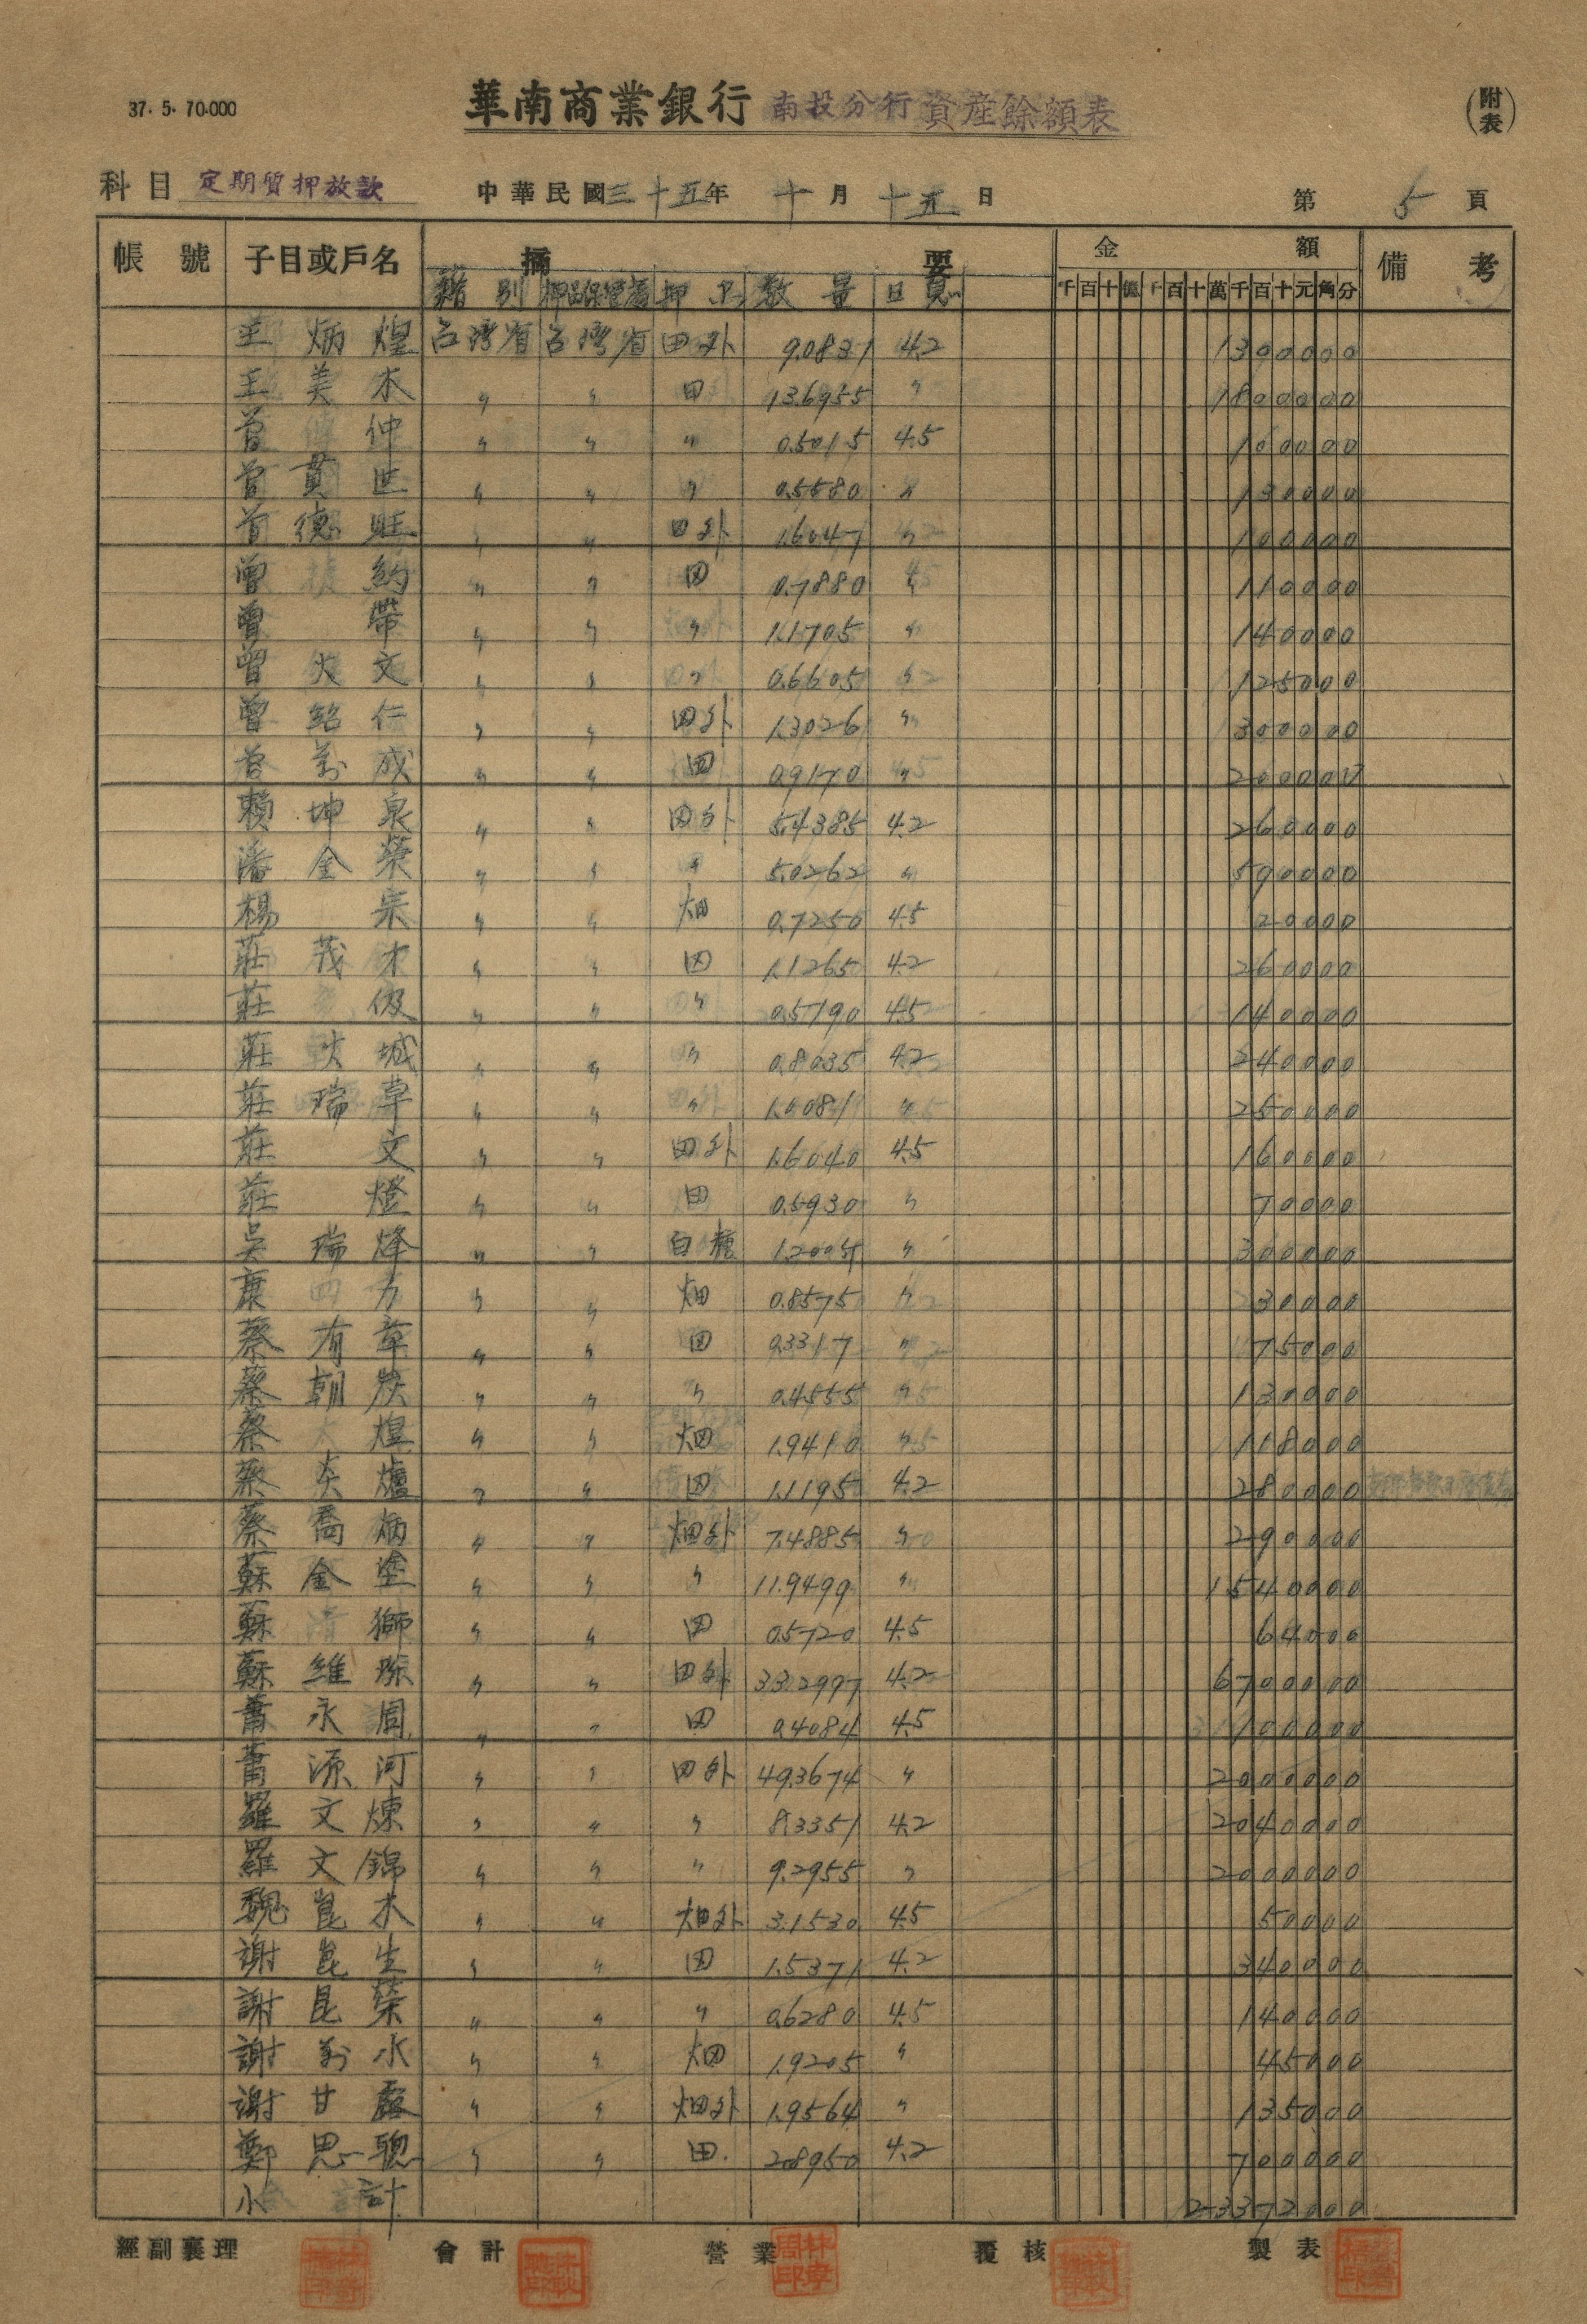 37. 5. 70.000
華南商業銀行 南投分行 資産餘額表
(附表)
科目 定期質押放款 中華民國三十五年 十月 十五日 第 5 頁
帳號 子目或戶名 摘要 金額 備考
籍別 押品保管處 押品 数量 日息 千百十億千百十萬千百十元角分
王炳煌 台湾省 台湾省 田外 9.0831 4.2 1300000
王美木 〃 〃 田 13.6955 〃 1800000
曾仲 〃 〃 〃 0.5015 4.5 100000
曾貫世 〃 〃 〃 0.5580 〃 130000
曾德旺 〃 〃 田外 1.6047 〃 100000
曾約 〃 〃 田 0.7880 〃 110000
曾帶 〃 〃 〃 1.1705 〃 140000
曾火文 〃 〃 〃 0.6605 〃 125000
曾紹仁 〃 〃 田外 1.3026 〃 300000
曾萬成 〃 〃 田 0.9170 〃 200000
賴坤泉 〃 〃 田外 5.4385 4.2 260000
潘金榮 〃 〃 〃 5.0262 〃 590000
楊宗 〃 〃 畑 0.7250 4.5 20000
莊茂才 〃 〃 田 1.1265 4.2 260000
莊伋 〃 〃 〃 0.5790 4.5 140000
莊火城 〃 〃 〃 0.8035 4.2 240000
莊瑞草 〃 〃 〃 1.0081 〃 250000
莊文 〃 〃 田外 1.6040 4.5 160000
莊燈 〃 〃 田 0.5930 〃 70000
吳瑞烽 〃 〃 白糖 1.2005 〃 300000
康力 〃 〃 畑 0.8575 〃 30000
蔡有章 〃 〃 田 0.3317 〃 75000
蔡朝炭 〃 〃 〃 0.4555 〃 130000
蔡煌 〃 〃 畑 1.9410 〃 118000
蔡炎爐 〃 〃 田 1.1195 4.2 280000
蔡喬炳 〃 〃 畑外 7.4885 〃 290000
蘇金塗 〃 〃 〃 11.9499 〃 1540000
蘇獅 〃 〃 田 0.5720 4.5 64000
蘇維琛 〃 〃 田外 33.2997 4.2 6700000
蕭永周 〃 〃 田 0.4084 4.5 100000
蕭源河 〃 〃 田外 49.3674 〃 2000000
羅文煉 〃 〃 〃 8.3351 4.2 2040000
羅文錦 〃 〃 〃 9.2955 〃 2000000
魏崑木 〃 〃 畑外 3.1530 4.5 50000
謝崑生 〃 〃 田 1.5371 4.2 340000
謝昆榮 〃 〃 〃 0.6280 4.5 140000
謝萬水 〃 〃 畑 1.9205 〃 45000
謝甘露 〃 〃 畑外 1.9564 〃 135000
鄭思聰 〃 〃 田 2.8950 4.2 700000
小計 23372000
經副襄理 會計 營業 覆核 製表